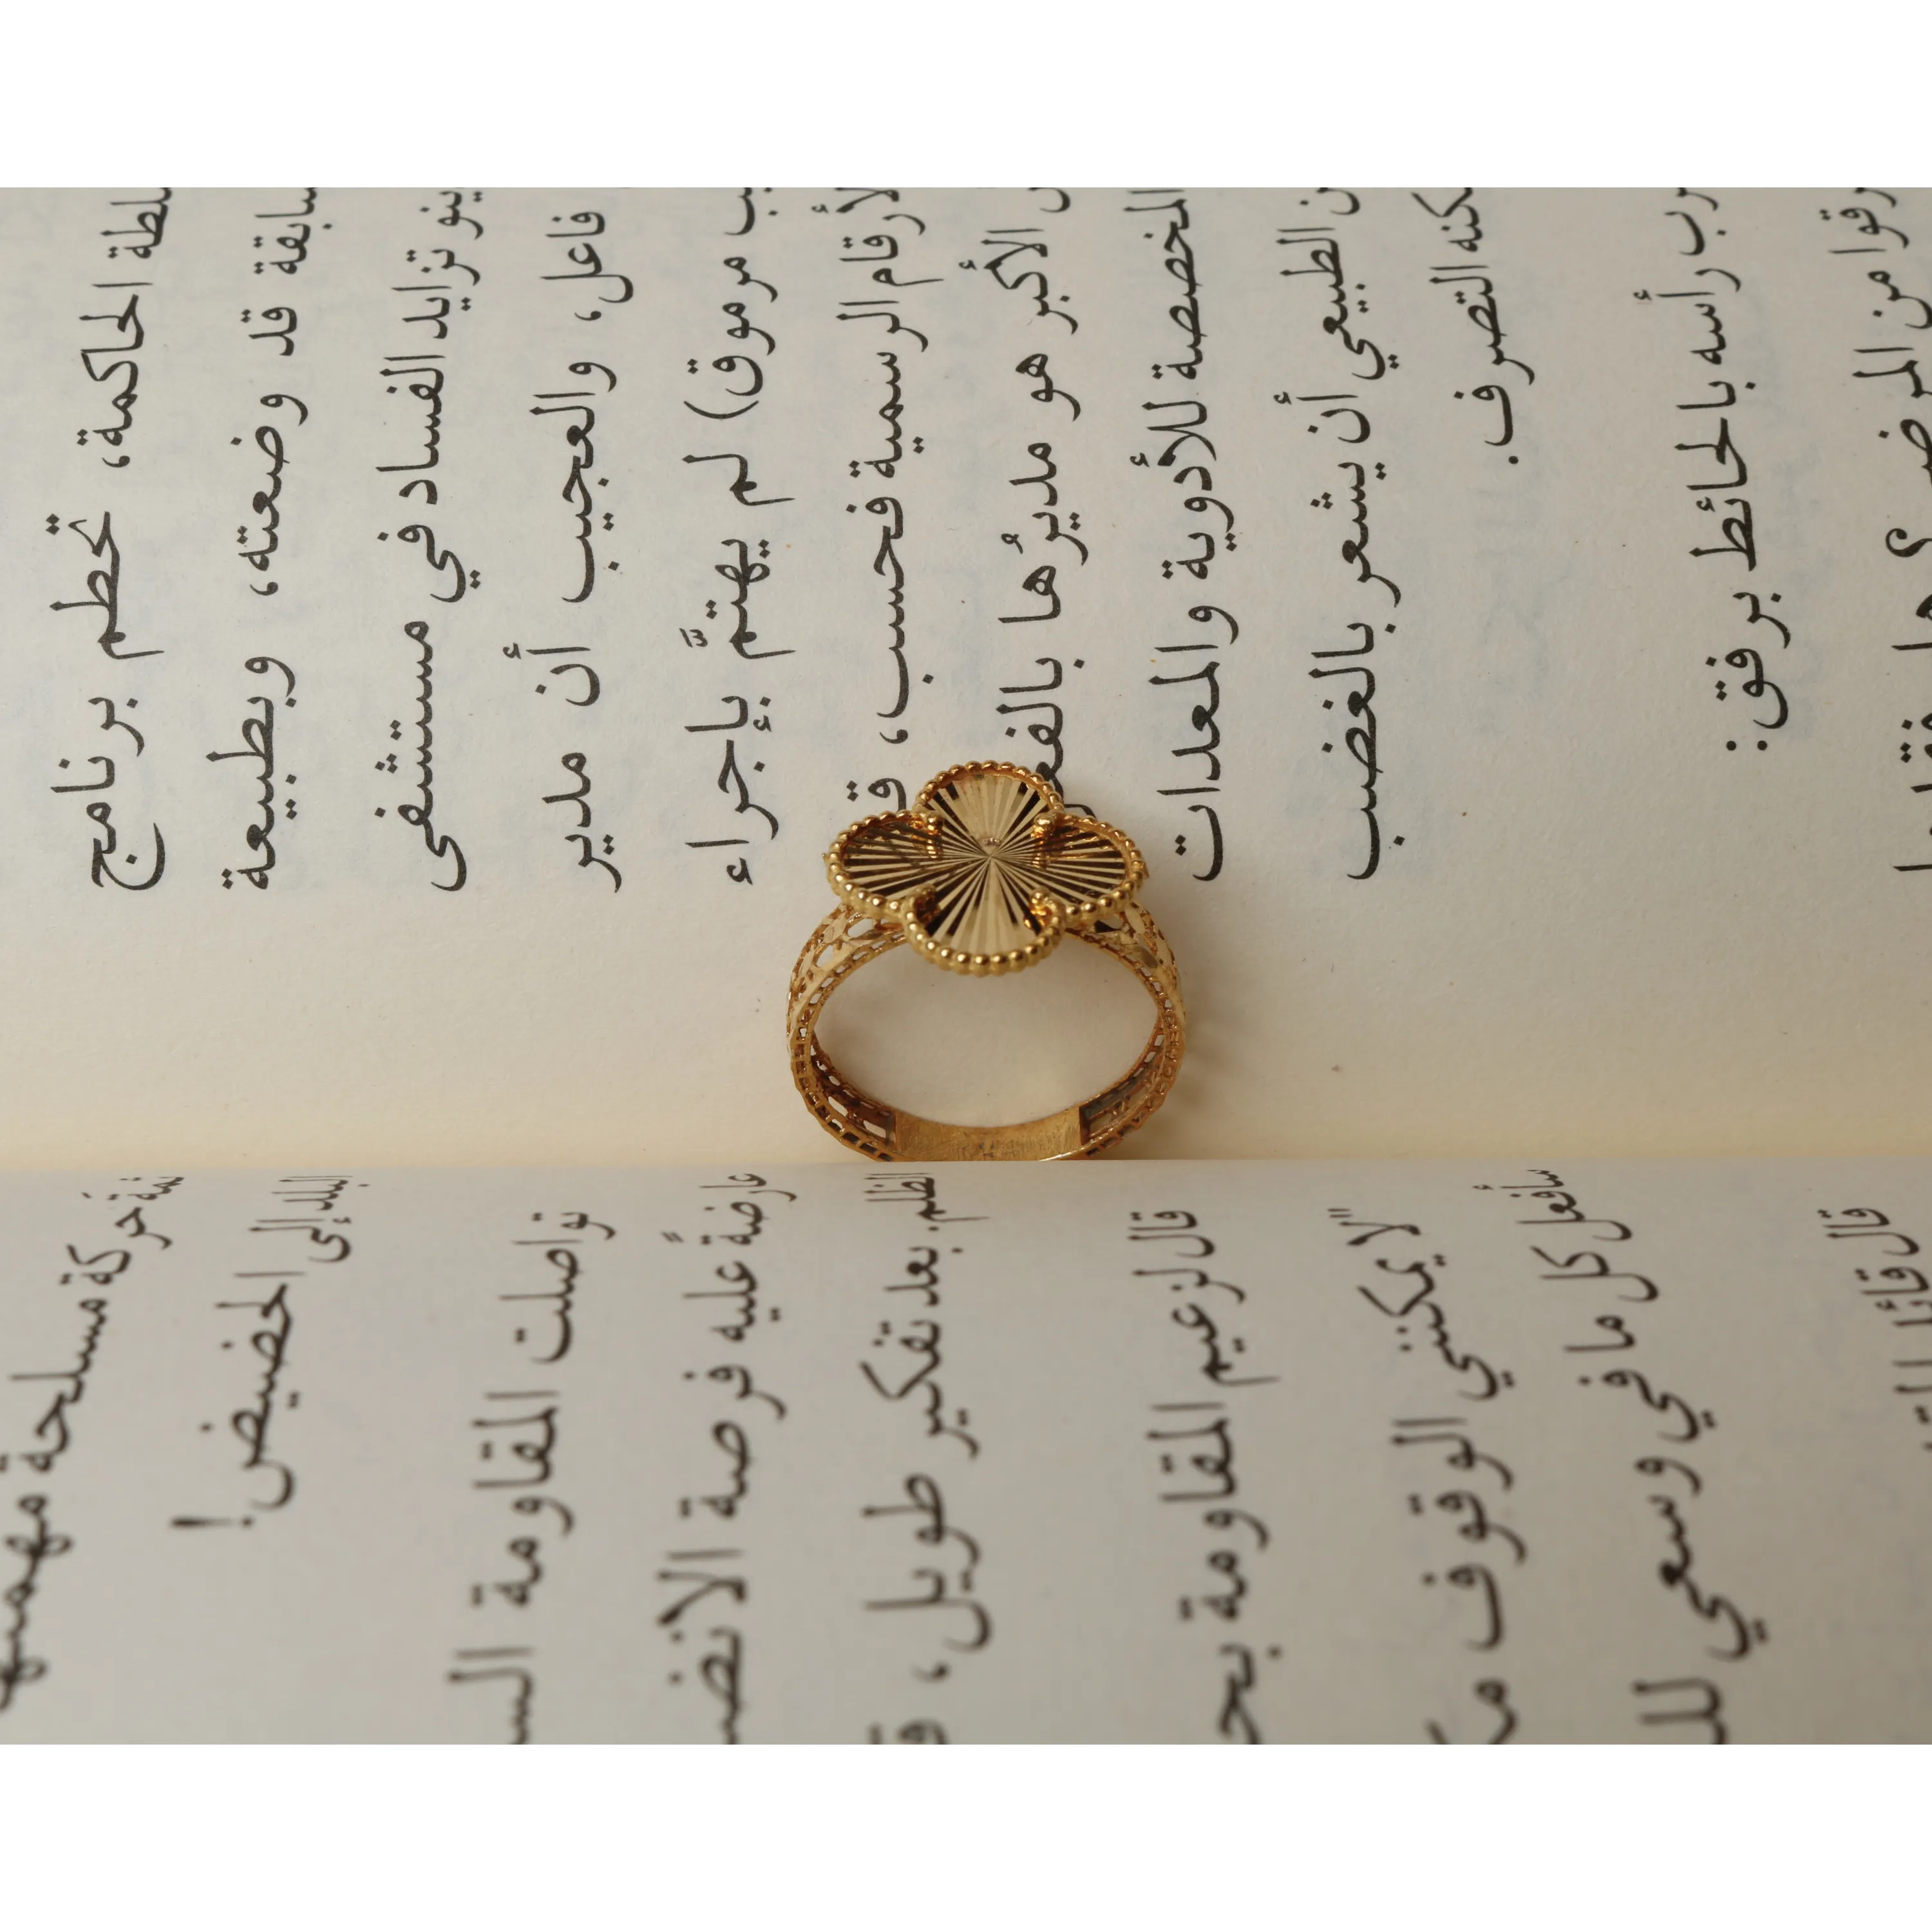 الحاكمة، تحطم برنامج
قد وضعته، وبطبيعة
تزايد الفساد في مستشفى
فاعل، والعجيب أن مدير
مرموق) لم يهتمَّ بإجراء
الرسمية فحسب،
الأكبر هو مديرُها
المخصصة للأدوية والمعدات
الطبيعي أن يشعر بالغضب
التصرف.
رأسه بالحائط برفق:
من
ثمة حركة مسلحة
البلد إلى الحضيض!
تواصلت المقاومة
عارضةً عليه فرصة
الظلم. بعد تفكير طويل،
قال لزعيم المقاومة
"لا يمكنني الوقوف
سأفعل كل ما في وسعي
قال